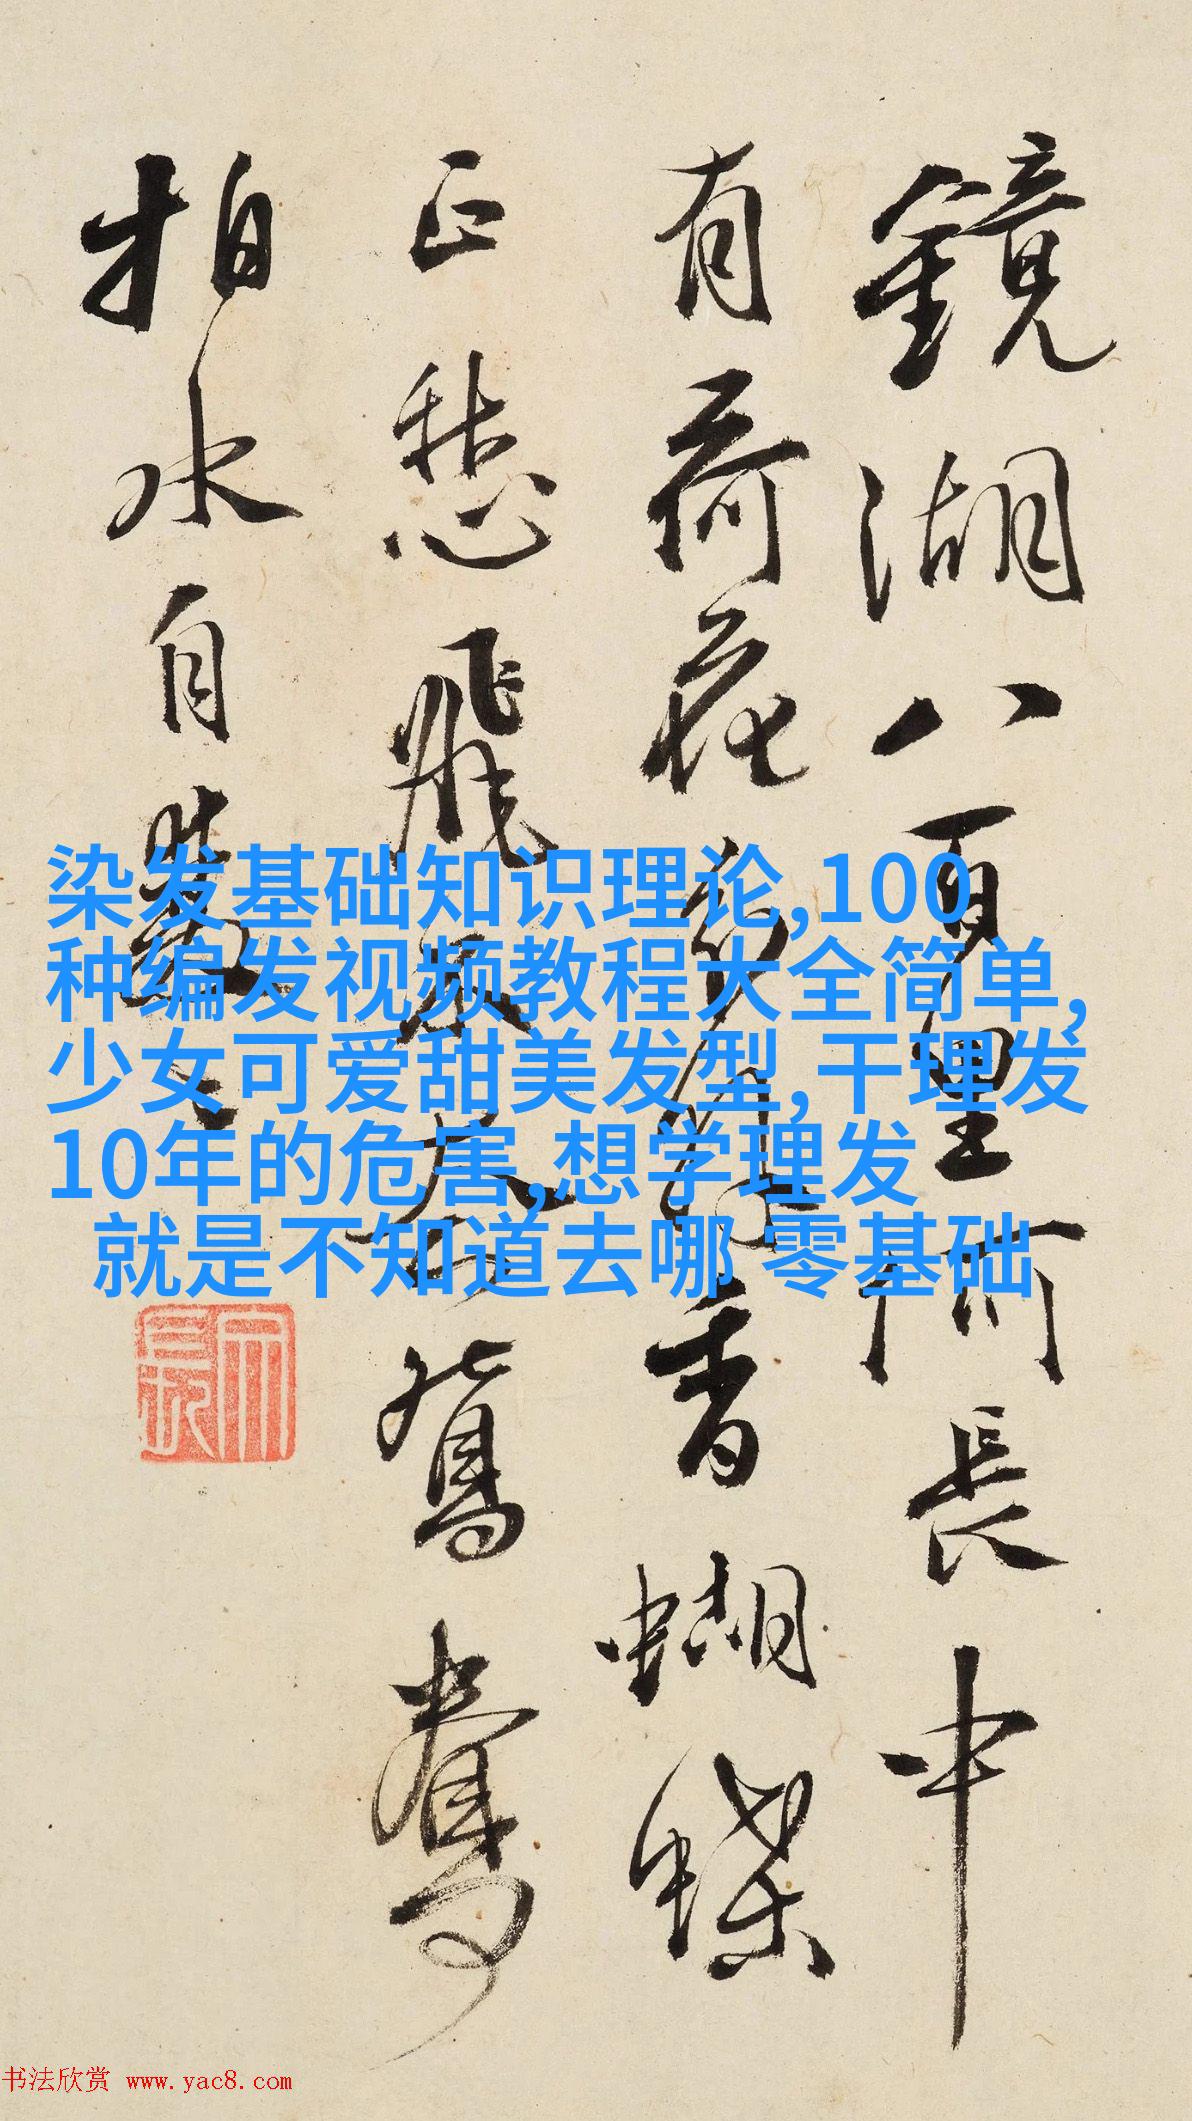 鏡湖八百里何長中
有荷花分外香蝴蝶
正愁飛不鴛鴦
拍水自雙
染发基础知识理论,100
种编发视频教程大全简单,
少女可爱甜美发型,干理发
10年的危害,想学理发
就是不知道去哪 零基础
书法欣赏 www.yac8.com